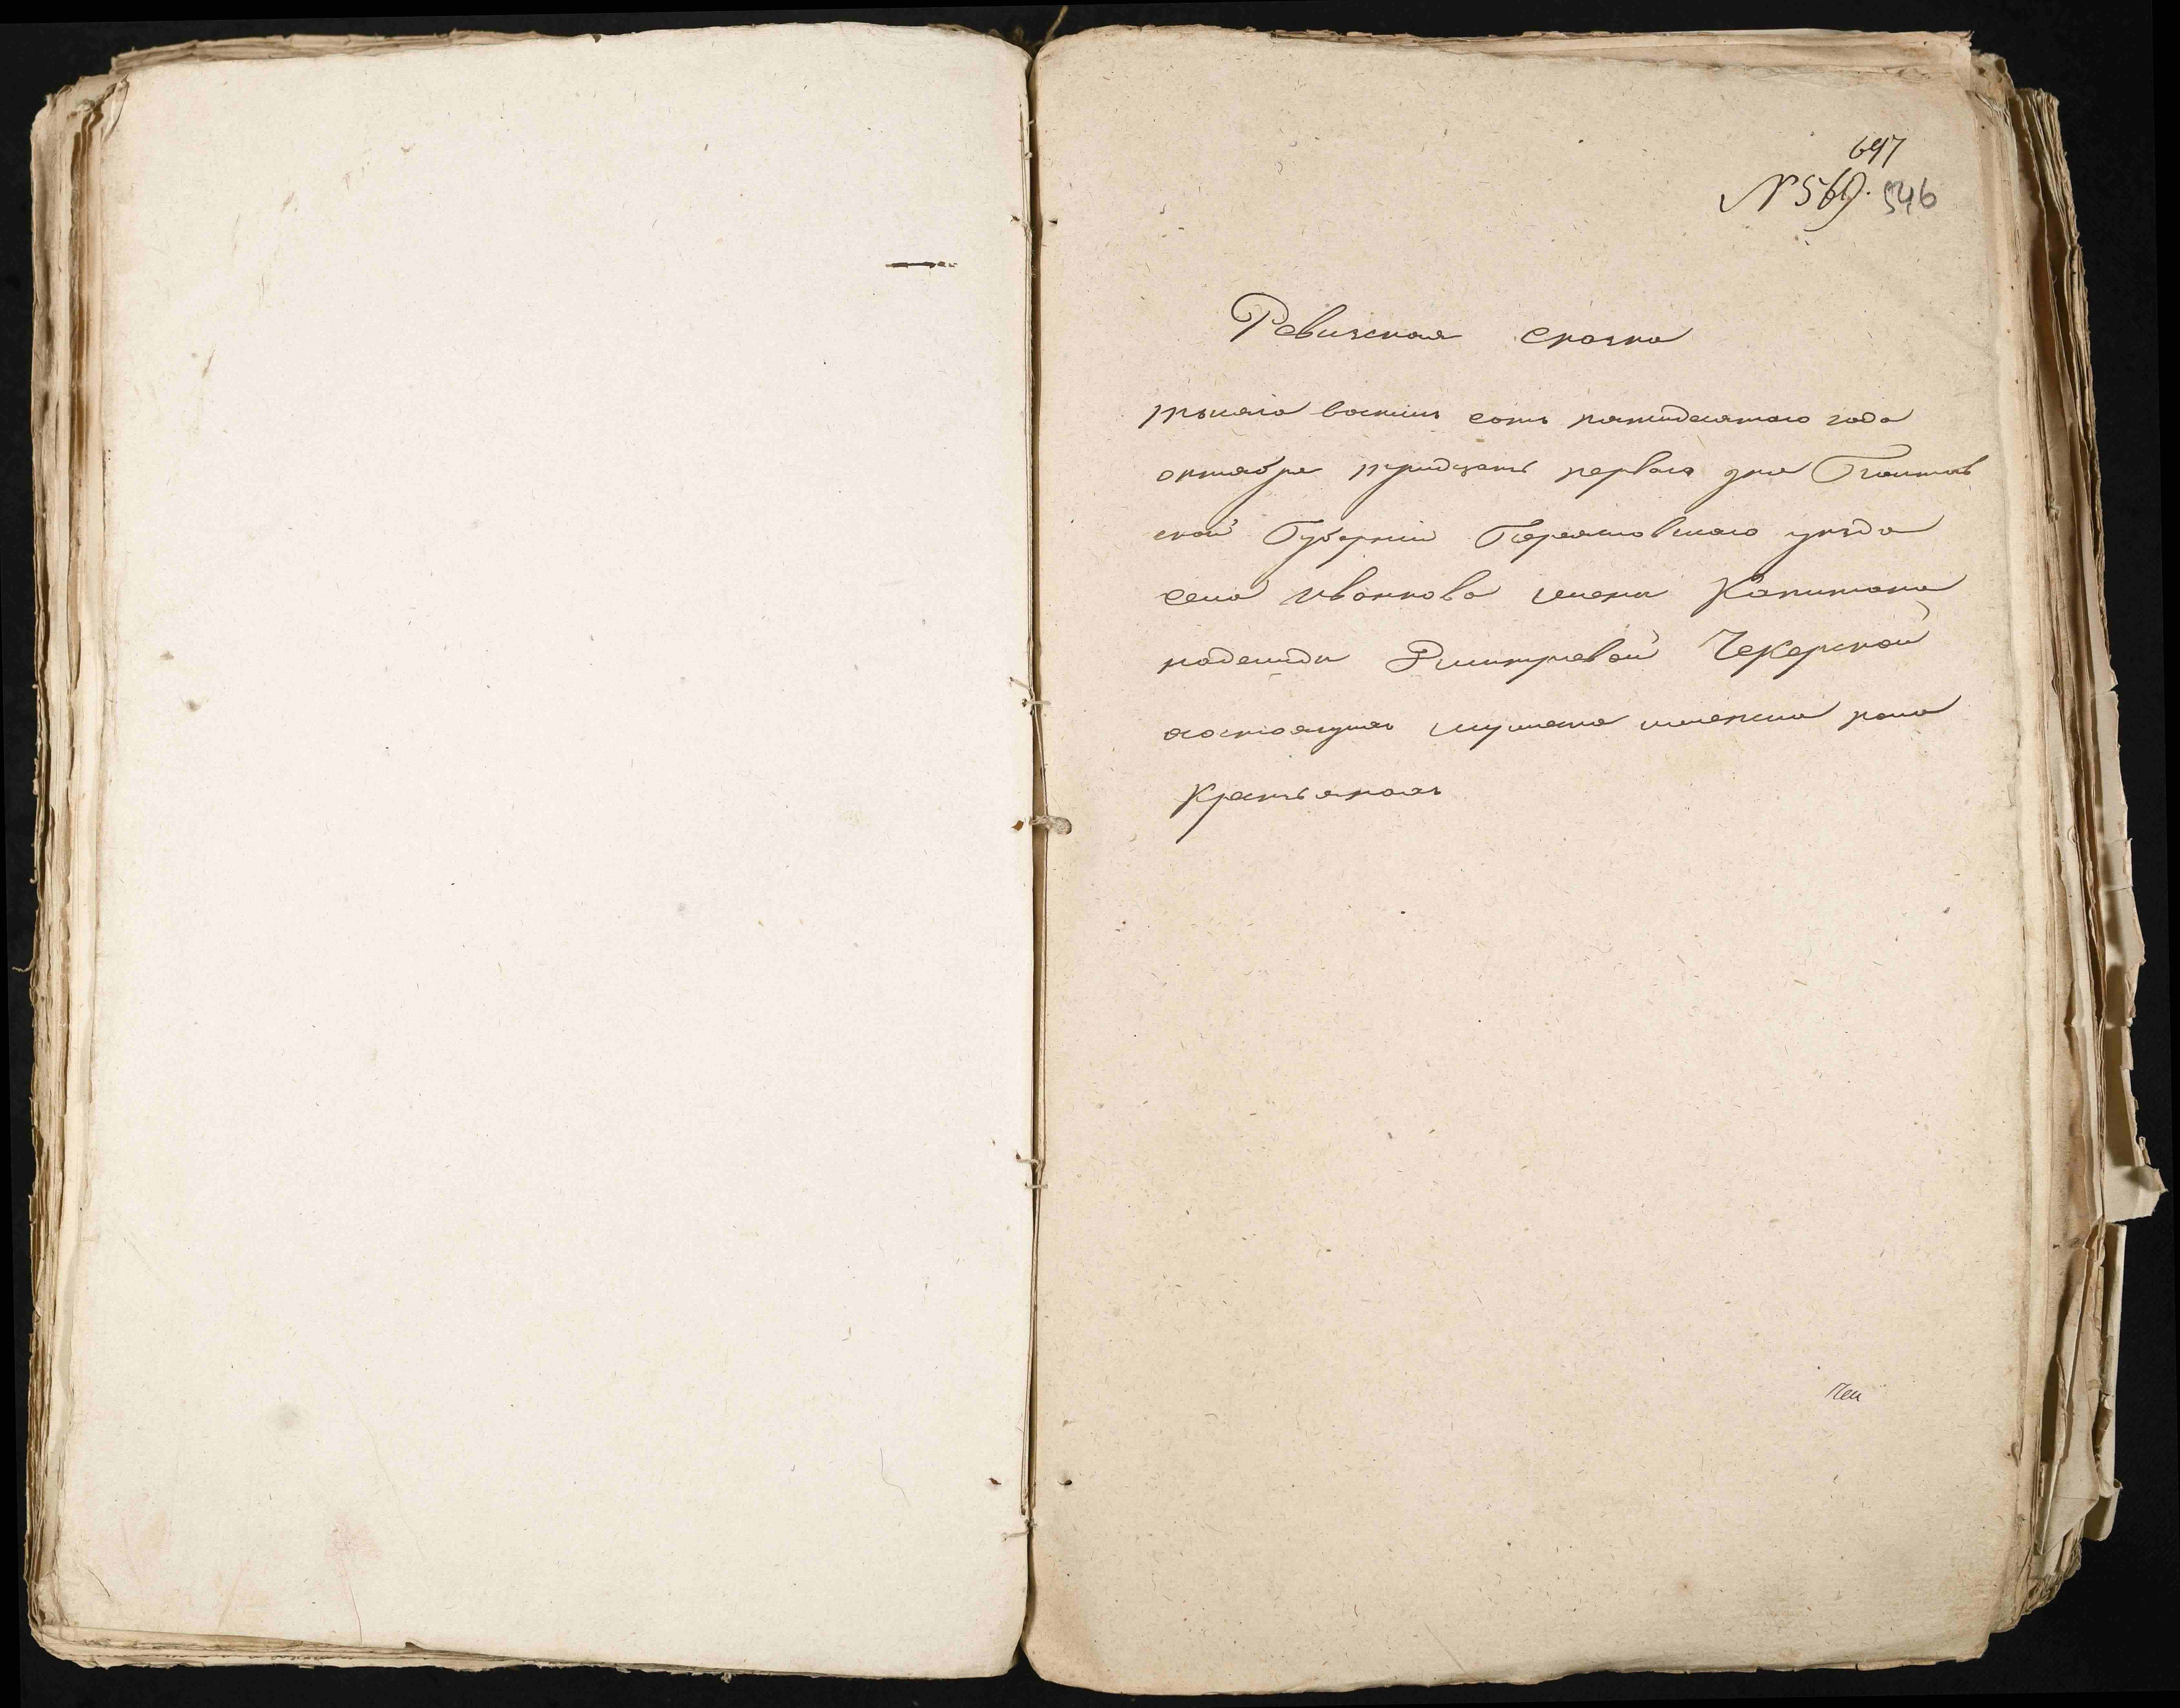 697
№ 569. 546
Ревизская сказка
тысяча восемь сотъ пятидесятаго года
октября тридцать перваго дня Полтав
ской Губернии Переясловскаго уезда
села Иванкова имени Капитана
надежди Дмитревой Чекерской
состоящихъ мужеска женска пола
Крестьянахъ